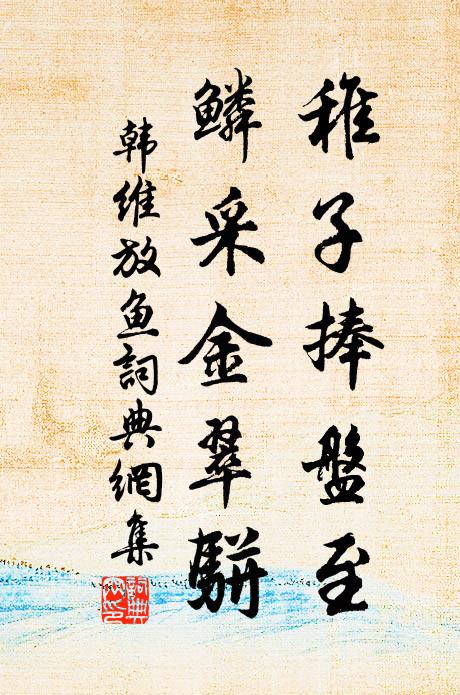 稚子捧盤至
鱗采金翠駢
韩维放鱼詞典網集
詞典